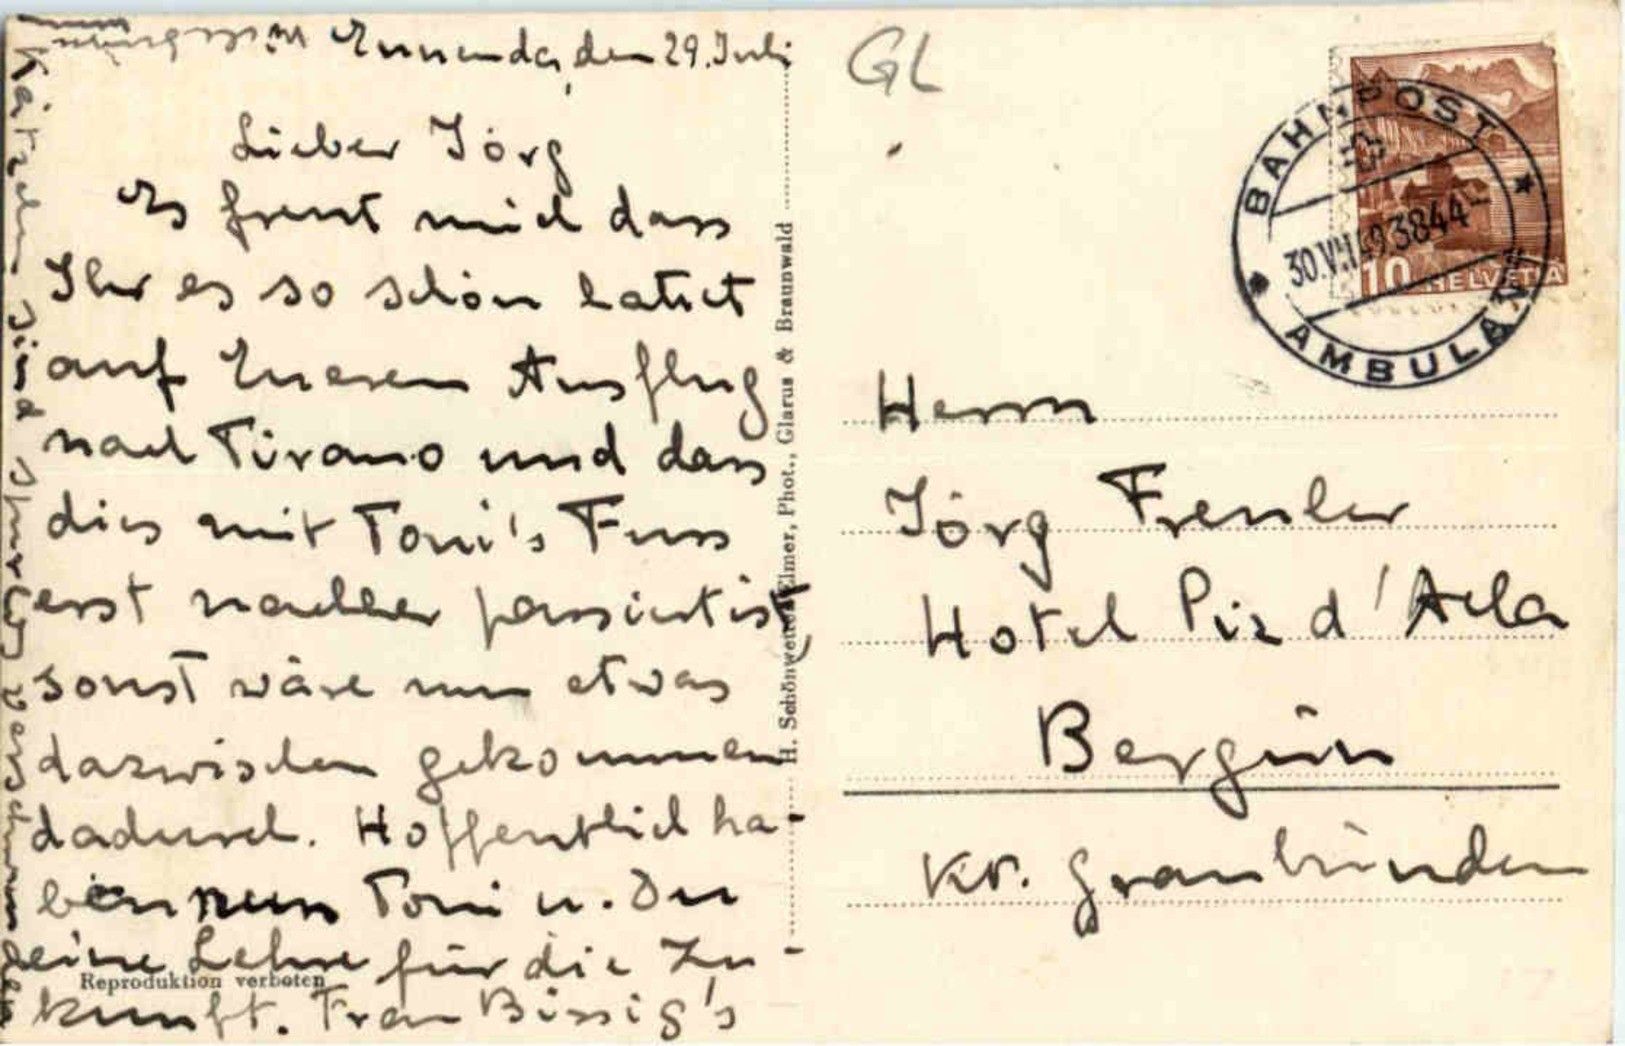 Ennenda, den 29. Juli
Lieber Jörg
Es freut mich dass
Ihr es so schön hattet
auf Eueren Ausflug
nach Tirano und dass
dies mit Toni's Fuss
erst nachher passiert ist,
sonst wäre nun etwas
dazwischen gekommen
dadurch. Hoffentlich ha-
ben nun Toni u. Du
eine Lehre für die Zu-
kunft. Frau Bissig's
Kätzchen sind spurlos verschwunden
Reproduktion verboten
H. Schönwetter-Elmer, Phot., Glarus & Braunwald
GL
BAHNPOST
30.VII.49.3844
AMBULANT
10 HELVETIA
Herrn
Jörg
Hotel Piz d'Aela
Bergün
Kt. Graubünden